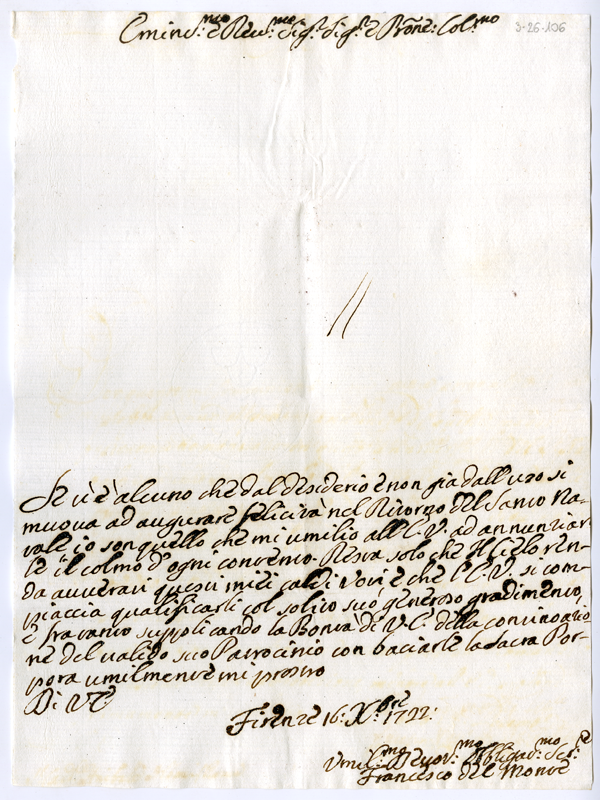 Emin.mo e Rev.mo Sig.r Sig.r e Prõne: Col.mo
3-26-106
Se v'è alcuno che dal desiderio e non gia dall'uso si
muova ad augurare felicità nel Ritorno del Santo Na-
tale io son quello che mi umilio all'E.V. ad annunziar-
le il colmo d'ogni contento. Resta solo che Il Cielo ren-
da avverati questi miei caldi Voti e che l'E.V. si com-
piaccia qualificarli col solito suo generoso gradimento,
e frattanto supplicando la Bontà di V.E. della continoazio-
ne del valido suo Patrocinio con baciarle la Sacra Por-
pora umilmente mi prostro
Di V.E.
Firenze 16: X.bre 1722:
Umil.mo Devot.mo Obligat.mo Ser.e
Francesco del Monte